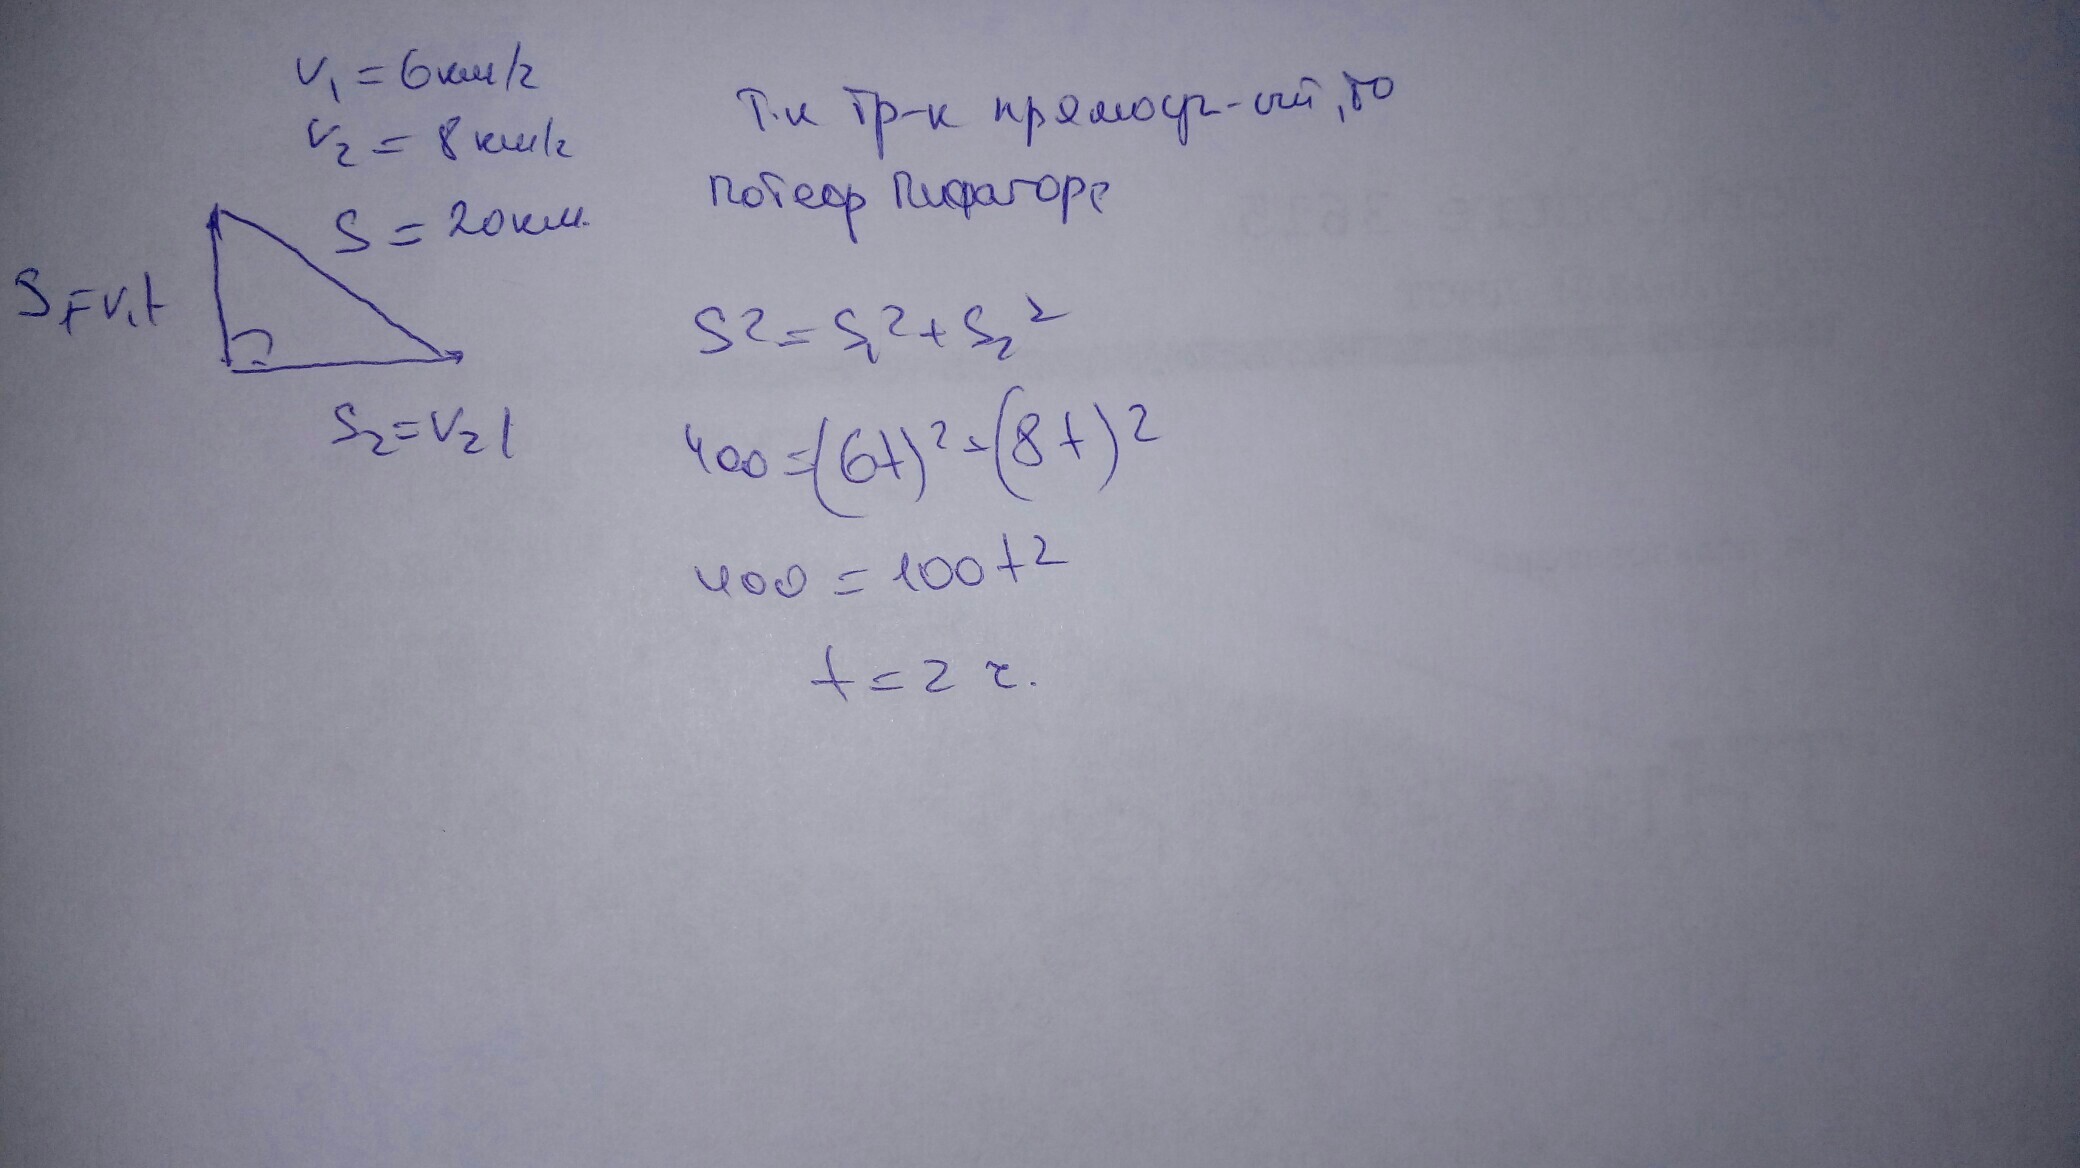 V₁ = 6 км/ч
V₂ = 8 км/ч
S = 20 км.
S₁=V₁t
S₂=V₂t
Т.к тр-к прямоуг-ый, то
по теор Пифагора
S²=S₁²+S₂²
400=(6t)²+(8t)²
400 = 100t²
t=2 ч.